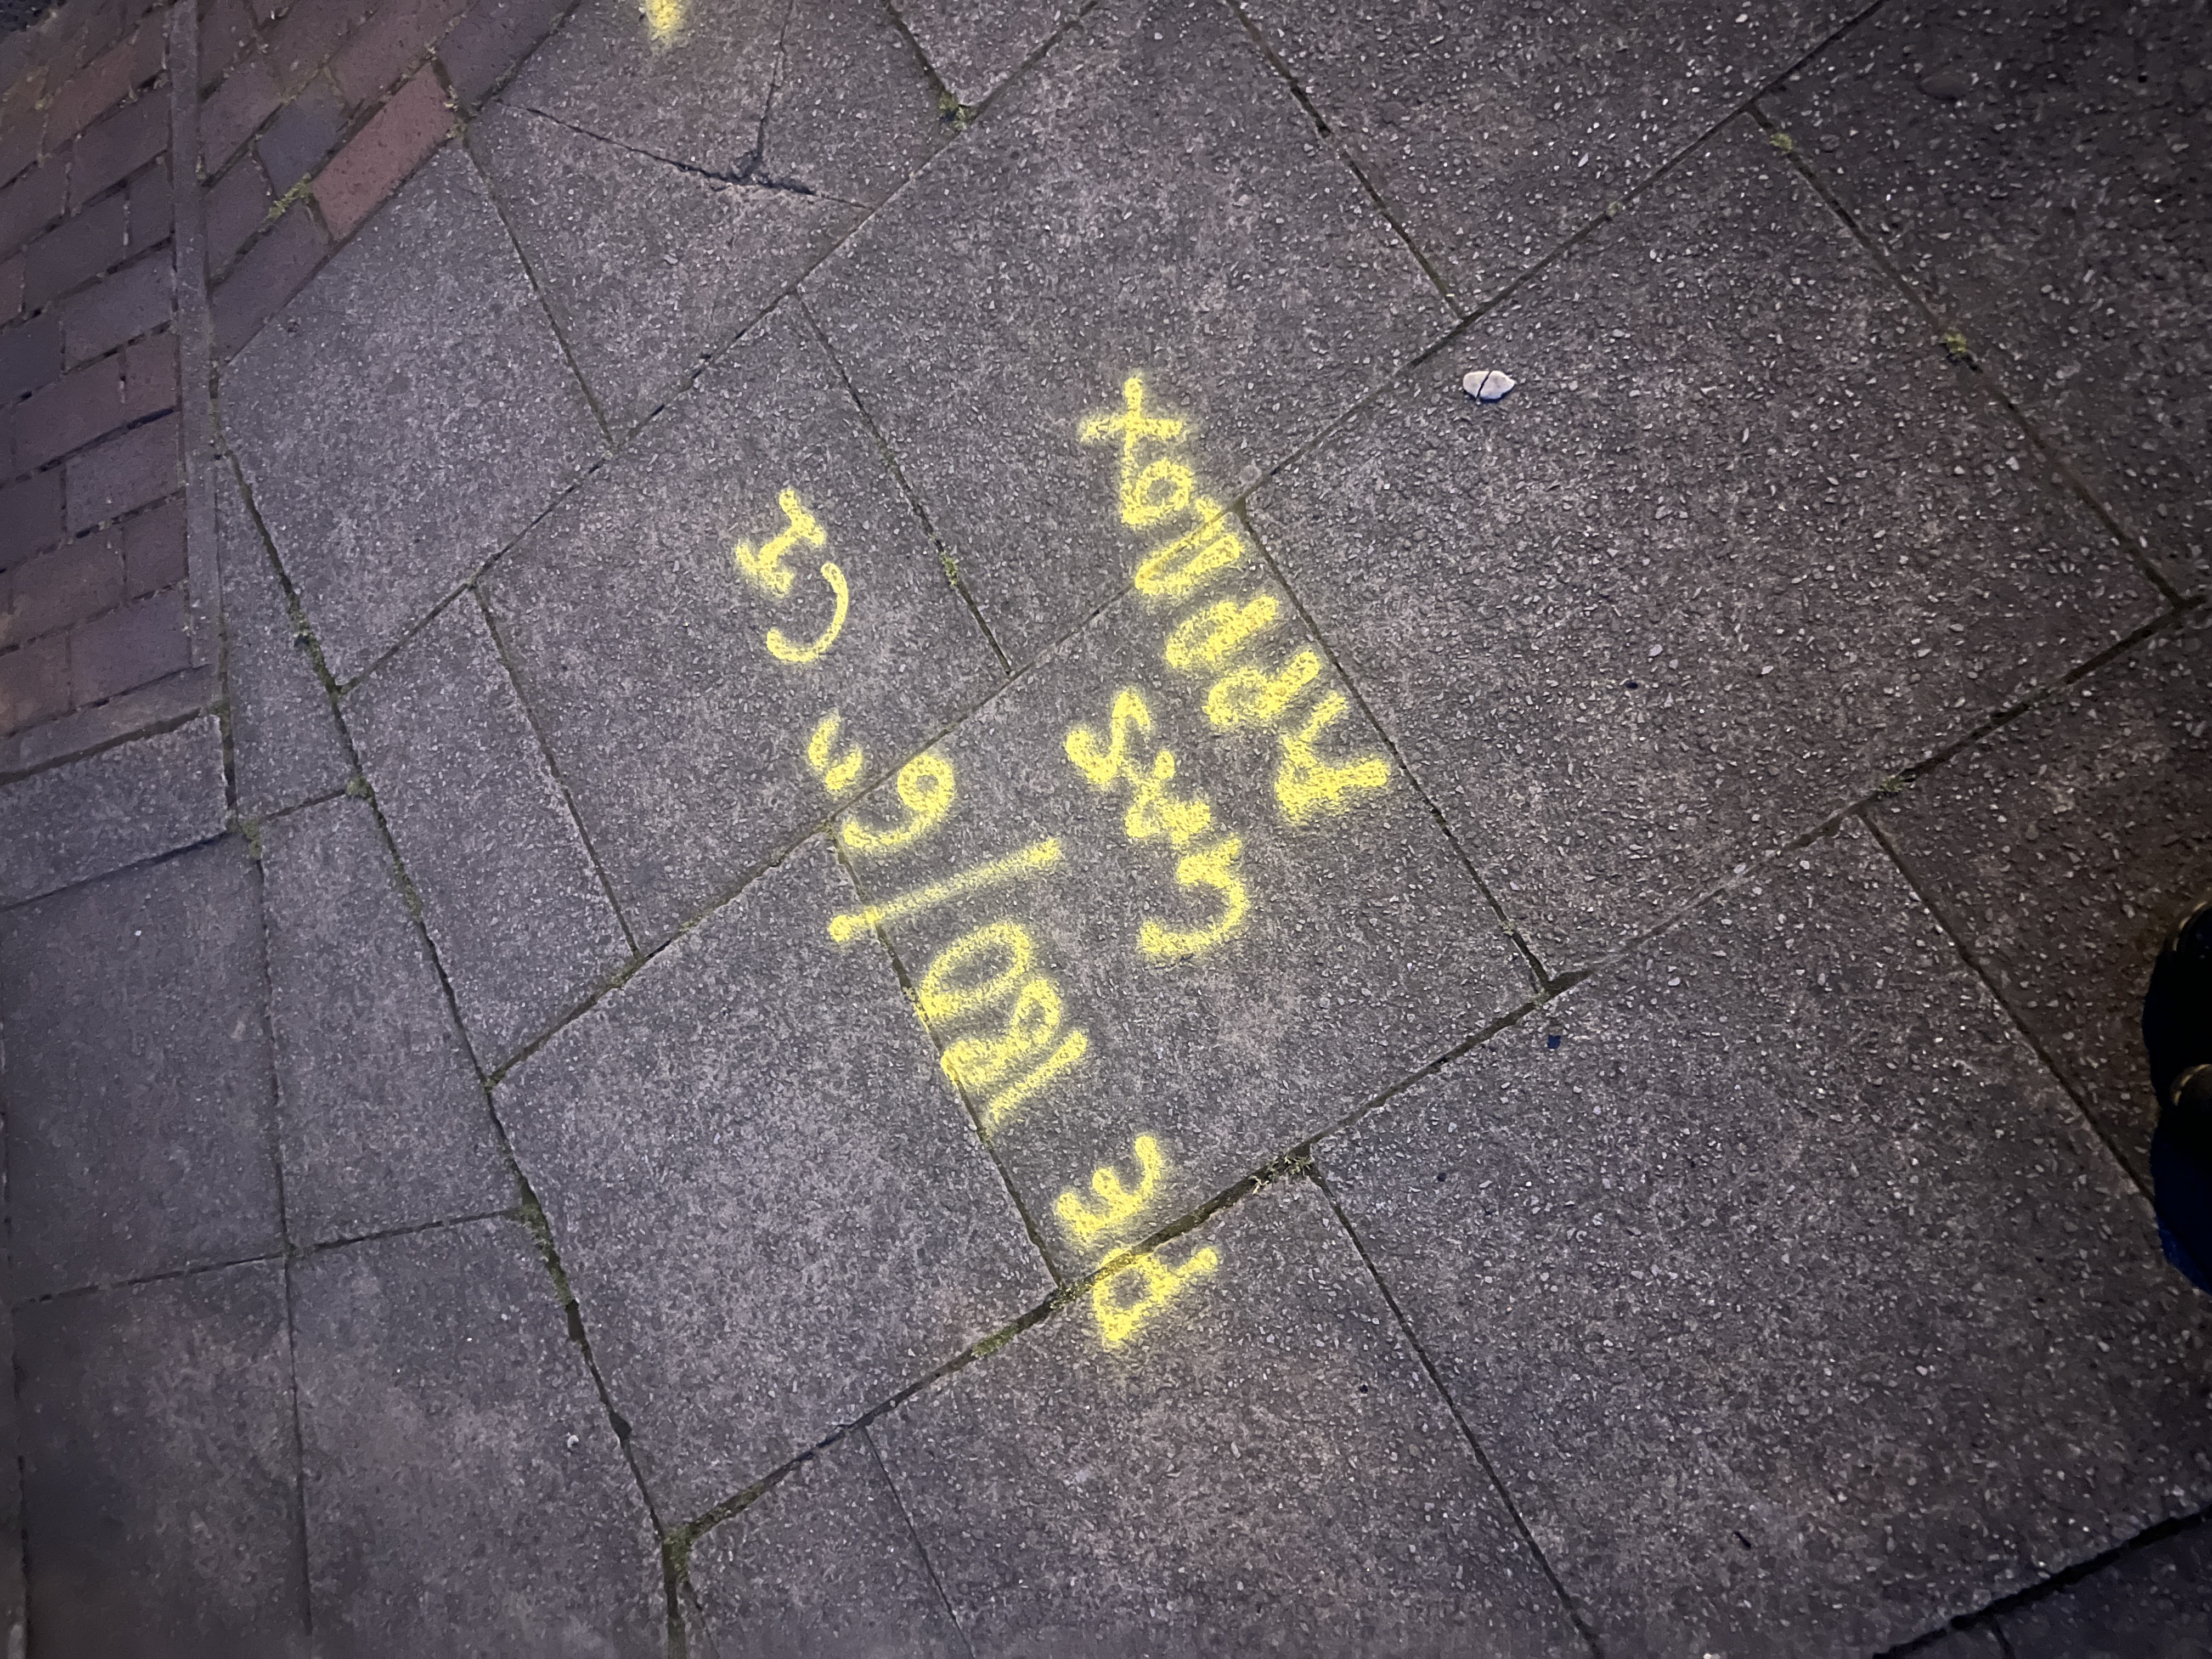 PE 180/6" CI
GAS
APPROX